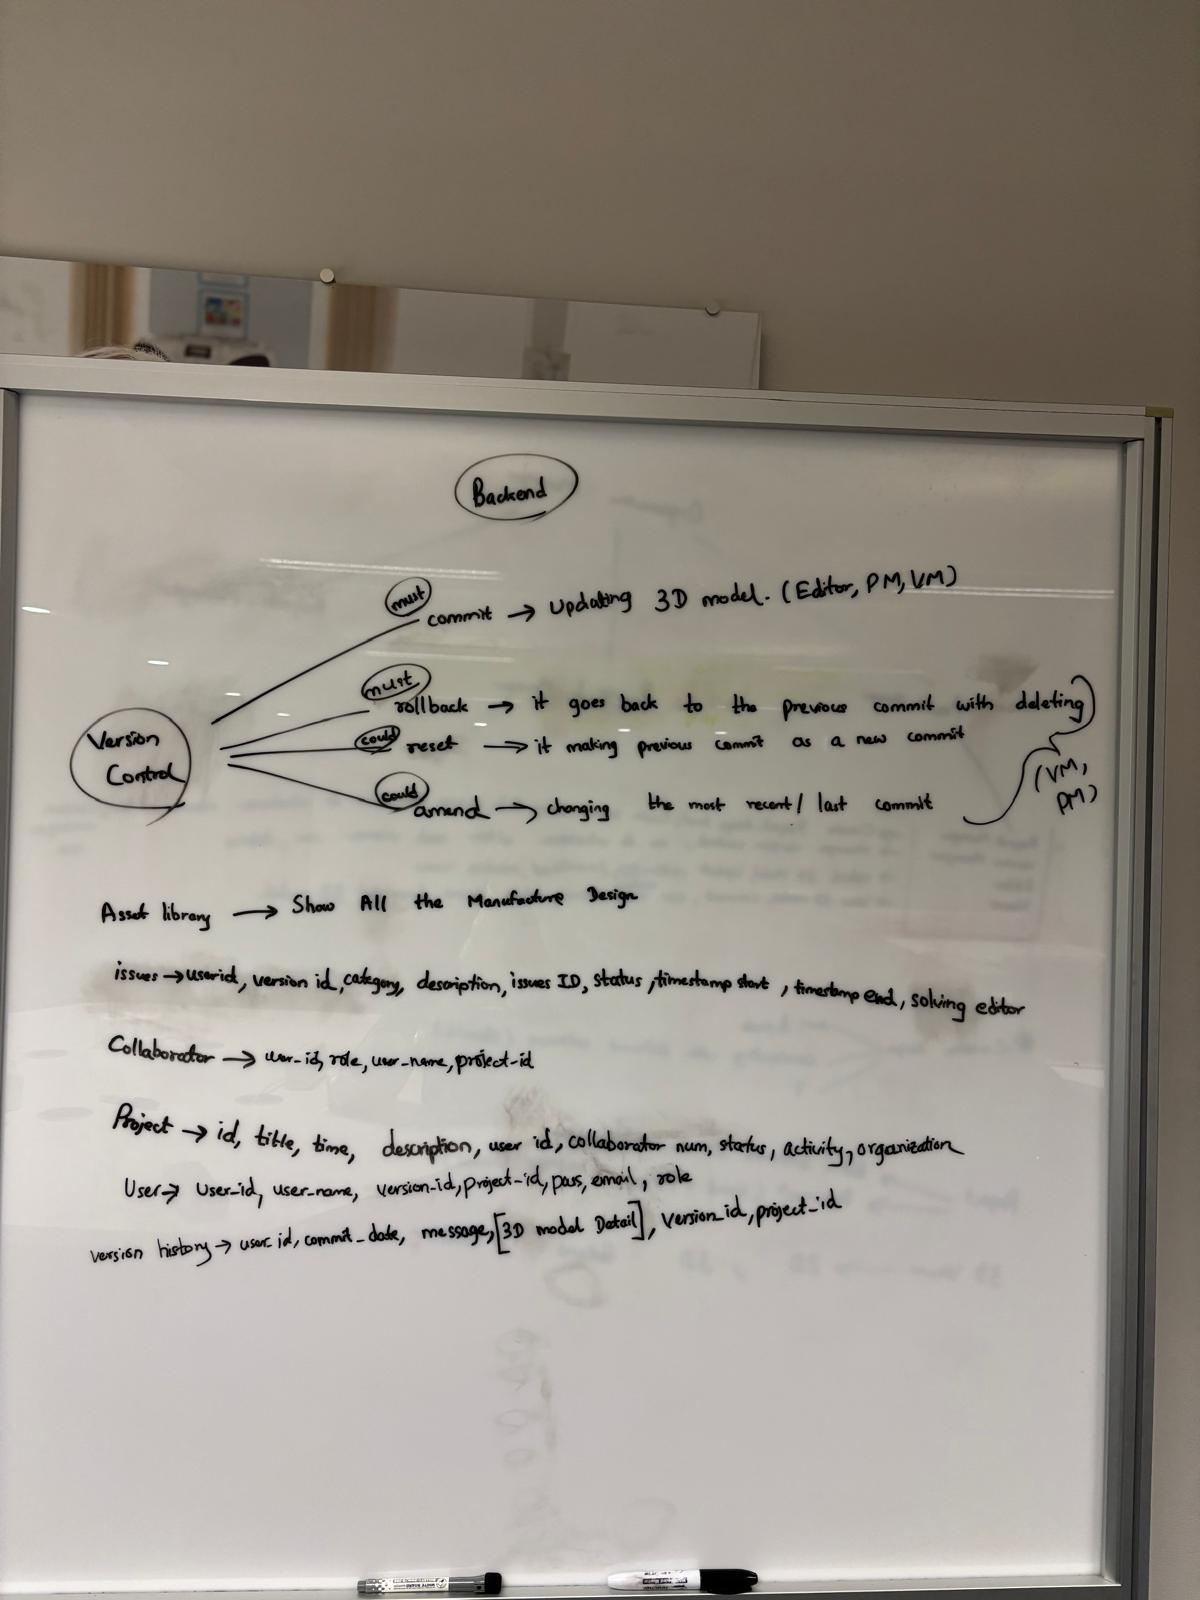 Backend
must
commit → updating 3D model. (Editor, PM, VM)
must
rollback → it goes back to the previous commit with deleting
could
reset → it making previous commit as a new commit
Version
Control
(VM,
PM)
could
amend → changing the most recent / last commit
Asset library → Show All the Manufacture Design
issues → userid, version id, category, description, issues ID, status, timestamp start, timestamp end, solving editor
Collaborator → user_id, role, user_name, project_id
Project → id, title, time, description, user id, collaborator num, status, activity, organization
User → user_id, user_name, version_id, project_id, pass, email, role
version history → user_id, commit_date, message, [3D model Detail], version_id, project_id